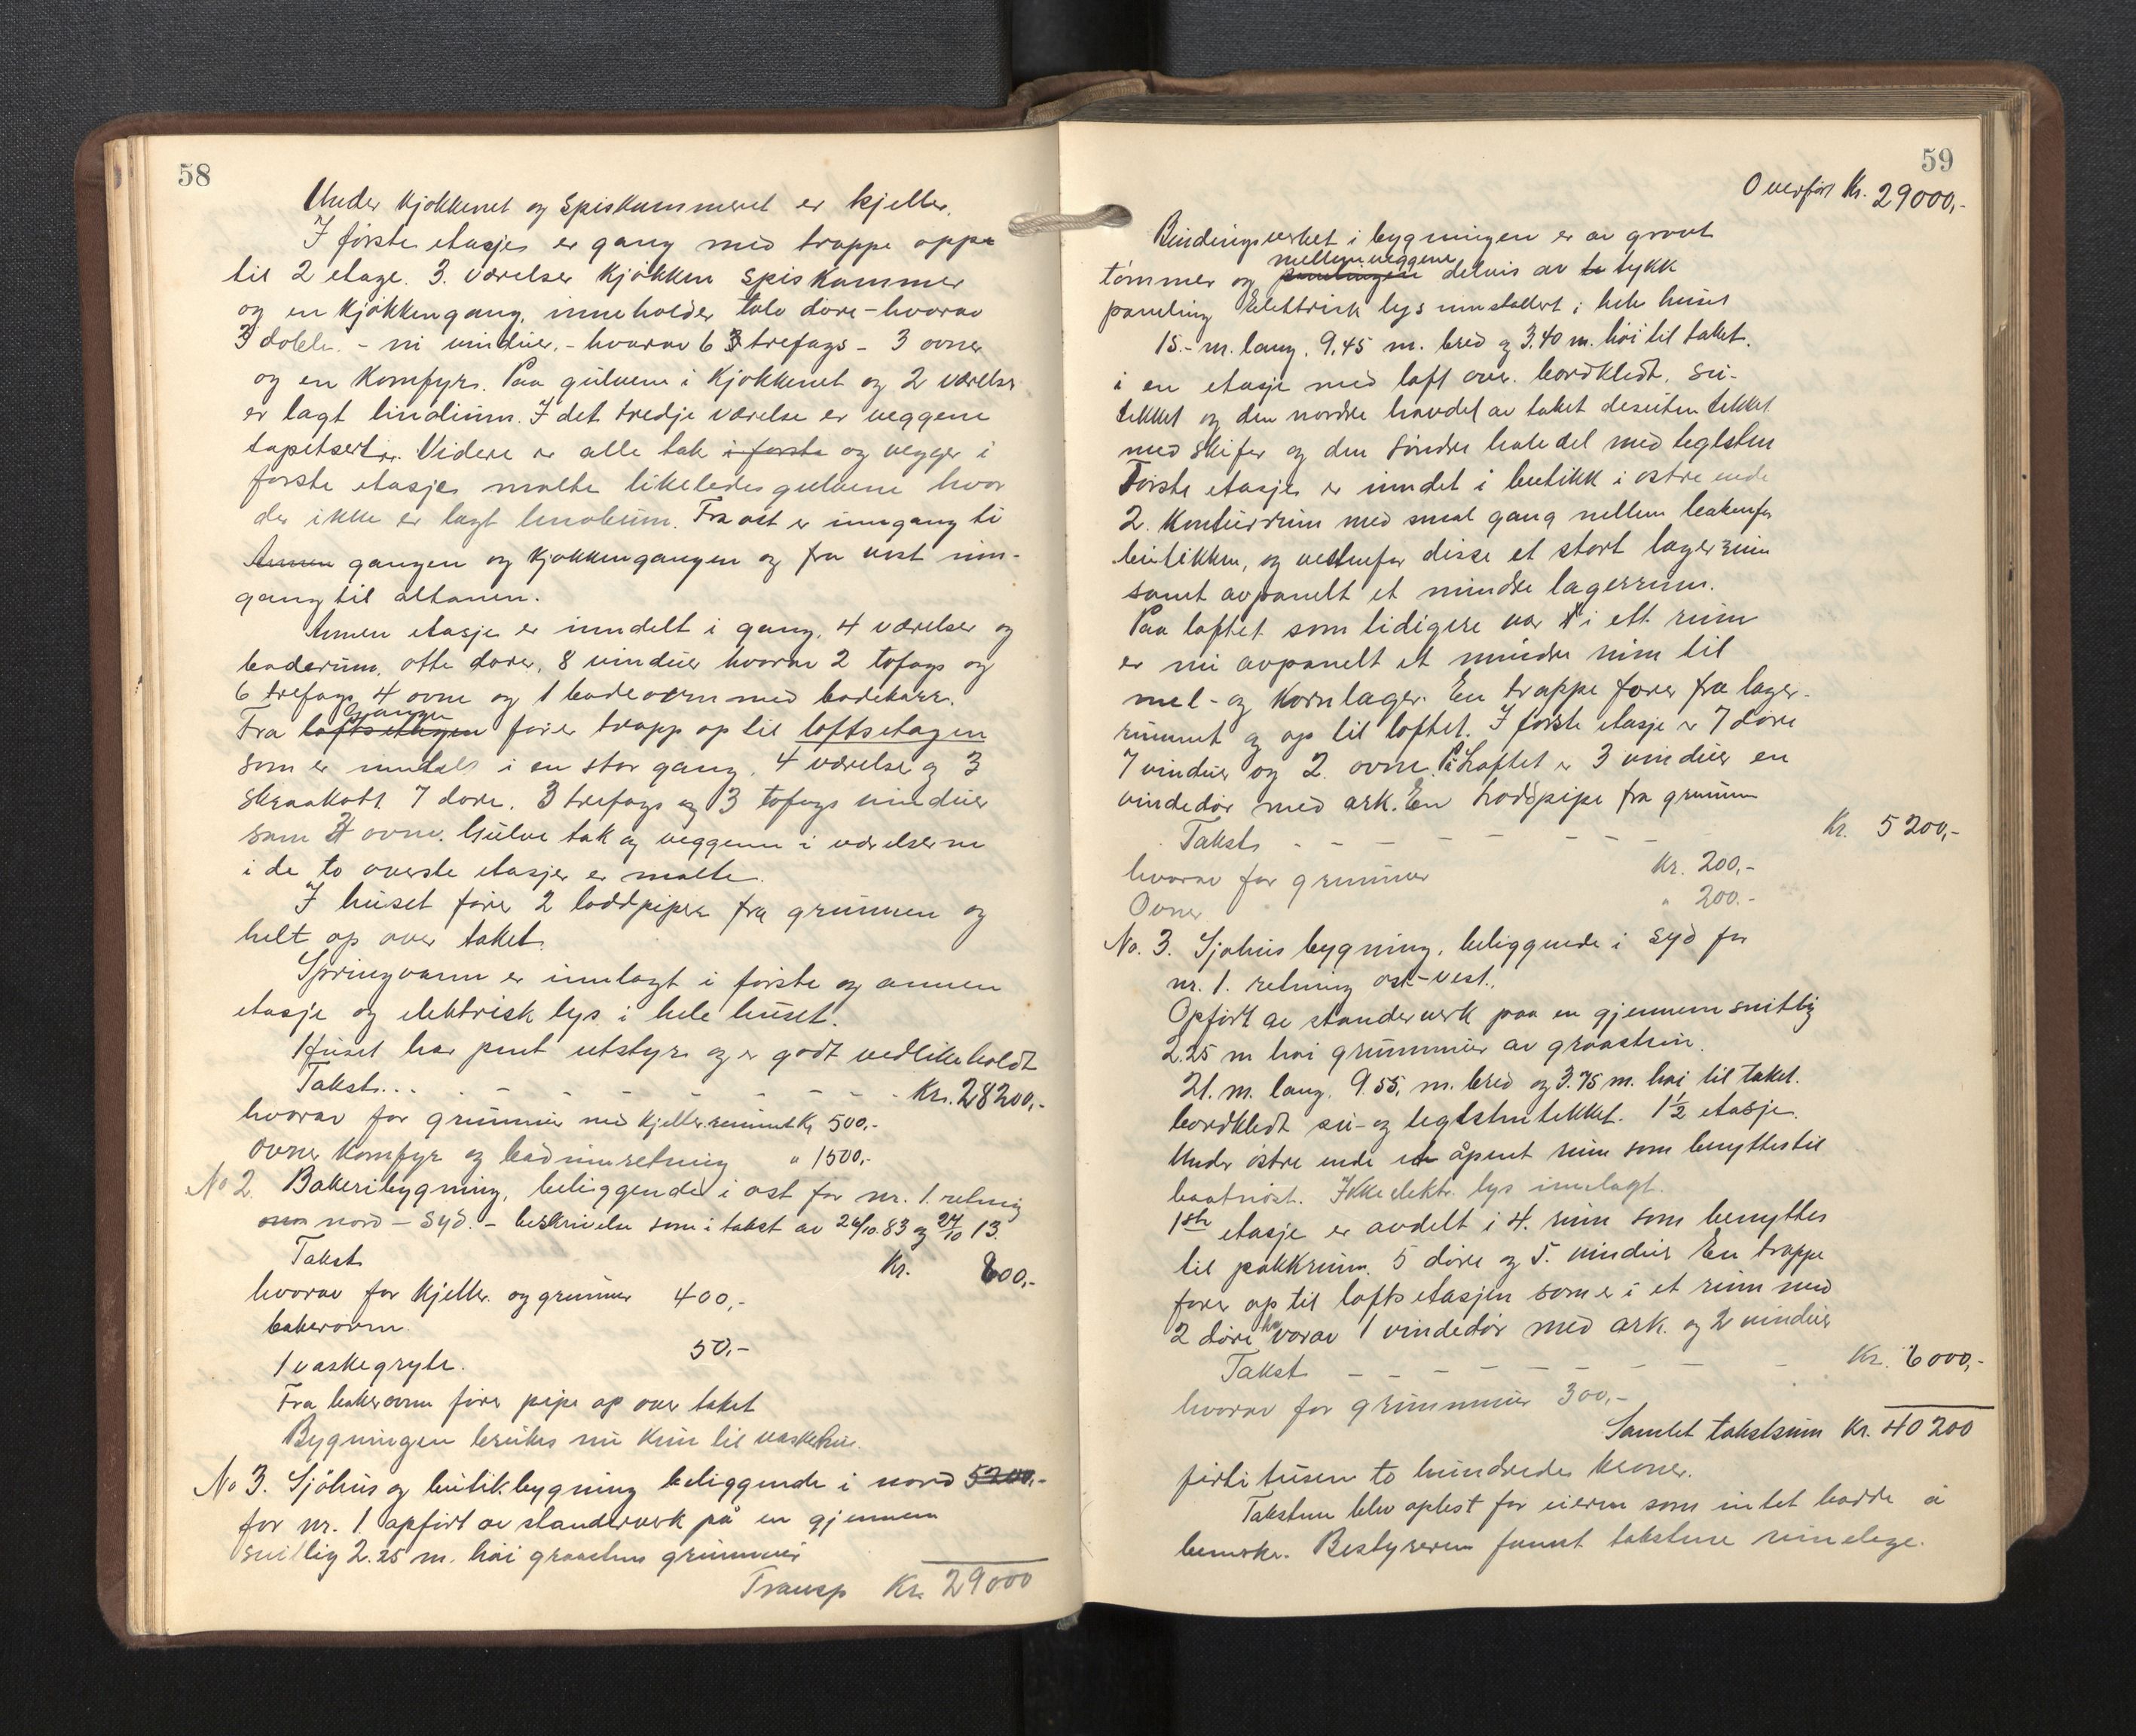 58
Under kjøkkenet og spiskammeret er kjeller.
I første etasje er gang med trappe oppe
til 2 etage. 3. værelser kjøkken spiskammer
og en kjøkkengang, inneholder tolv døre - hvorav
3 doble. - ni vinduer. - hvorav 6 trefags - 3 ovner
og en komfyr. Paa gulvene i kjøkkenet og 2 værelser
er lagt linolium. I det tredje værelse er veggene
tapetsert. Videre er alle tak i første og vegger i
første etasje malte likeledes gulvene hvor
der ikke er lagt linoleum. Fra øst er inngang til
Annen gangen og kjøkkengangen og fra vest inn-
gang til altanen.
Annen etasje er inndelt i gang, 4 værelser og
baderum, otte dører, 8 vinduer hvorav 2 tofags og
6 trefags, 4 ovne og 1 badeovn med badekarr.
Gangen
Fra loftsetagen fører trapp op til loftsetagen
som er inndelt i en stor gang, 4 værelse og 3
skraakott 7 døre, 3 trefags og 3 tofags vinduer
som ovne. Gulve tak og veggene i værelserne
i de to øverste etasjer er malte.
I huset fører 2 loddpiper fra grunnen og
helt op over taket.
Springvann er innlagt i første og annen
etasje og elektrisk lys i hele huset.
Huset har pent utstyr og er godt vedlikeholdt
Takst... - - - - - Kr. 28200,-
hvorav for grunmur med kjellerrummet Kr 500,-
ovner komfyr og badinnretning " 1500,-
No 2. Bakeribygning, beliggende i øst for nr. 1. retning
nord - syd. - beskrivelse som i takst av 26/10.83 og 24/10 13.
Takst Kr. 800,-
hvorav for kjeller og grunmur 400,-
bakerovn
1 vaskegryte. 50,-
Fra bakerovnen fører pipe op over taket
Bygningen brukes nu kun til vaskehus.
No 3. Sjøhus og butikbygning beliggende i nord 5200,-
for nr. 1 opført av standerverk på en gjennem
snittlig 2.25 m. høi graastens grunmur
Transp Kr. 29000
59
Overført Kr. 29000,-
Bindingsverket i bygningen er av grovt
mellemveggene
tømmer og panelingen delvis av to tykk
paneling Elektrisk lys innstallert i hele huset
15.- m. lang, 9.45 m. bred og 3.40 m. høi til taket.
i en etasje med loft over. bordkledt, su-
tekket og den nordre havdel av taket desuten tekket
med skifer og den søndre halvdel med teglsten
Første etasje er inndet i butikk i østre ende
2. kontorrum med smal gang mellem bakenfor
butikken, og vestenfor disse et stort lagerrum
samt avpanelt et mindre lagerrum.
Paa loftet som tidigere var i ett rum
er nu avpanelt et mindre rum til
mel- og kornlager. En trappe fører fra lager-
rummet og op til loftet. I første etasje er 7 døre
7 vinduer og 2. ovne. På Loftet er 3 vinduer en
vindedør med ark. En loddpipe fra grunnen
Takst - - - - - Kr. 5200,-
hvorav for grunmur Kr. 200,-
Ovner " 200.-
No. 3. Sjøhus bygning, beliggende i syd for
nr. 1. retning øst-vest.
Opført av standerverk paa en gjennemsnittlig
2.25 m høi grunnmur av graastein.
21. m. lang, 9.55, m. bred og 3.75 m. høi til taket.
bordkledt su- og teglstentekket. 1½ etasje.
Under østre ende et åpent rum som benyttes til
baatnøst. Ikke elektr. lys innlagt.
1ste etasje er avdelt i 4. rum som benyttes
til pakkrum. 5 døre og 5. vinduer En trappe
fører op til loftsetasjen som er i et rum med
2 døre hvorav 1 vindedør med ark. og 2 vinduer
Takst - - - - - - Kr. 6000,-
hvorav for grunnmur 300,-
Samlet takstsum Kr. 40200
førti tusen to hundrede kroner.
Taksten blev oplest for eieren som intet hadde å
bemerke. Bestyreren fannt takstene rimelige.